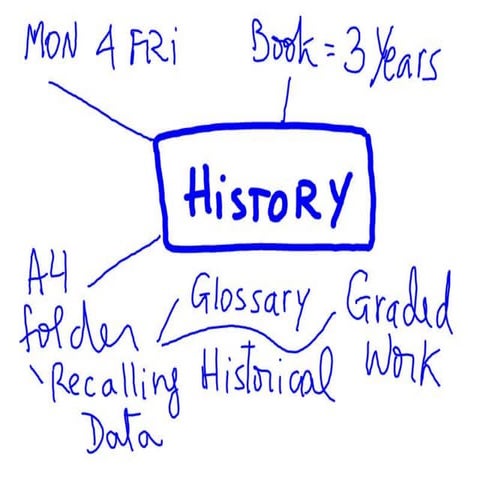 MON 4 FRi
Book = 3 Years
HiSTORY
A4
folder
Glossary
Graded
Work
Recalling Historical
Data